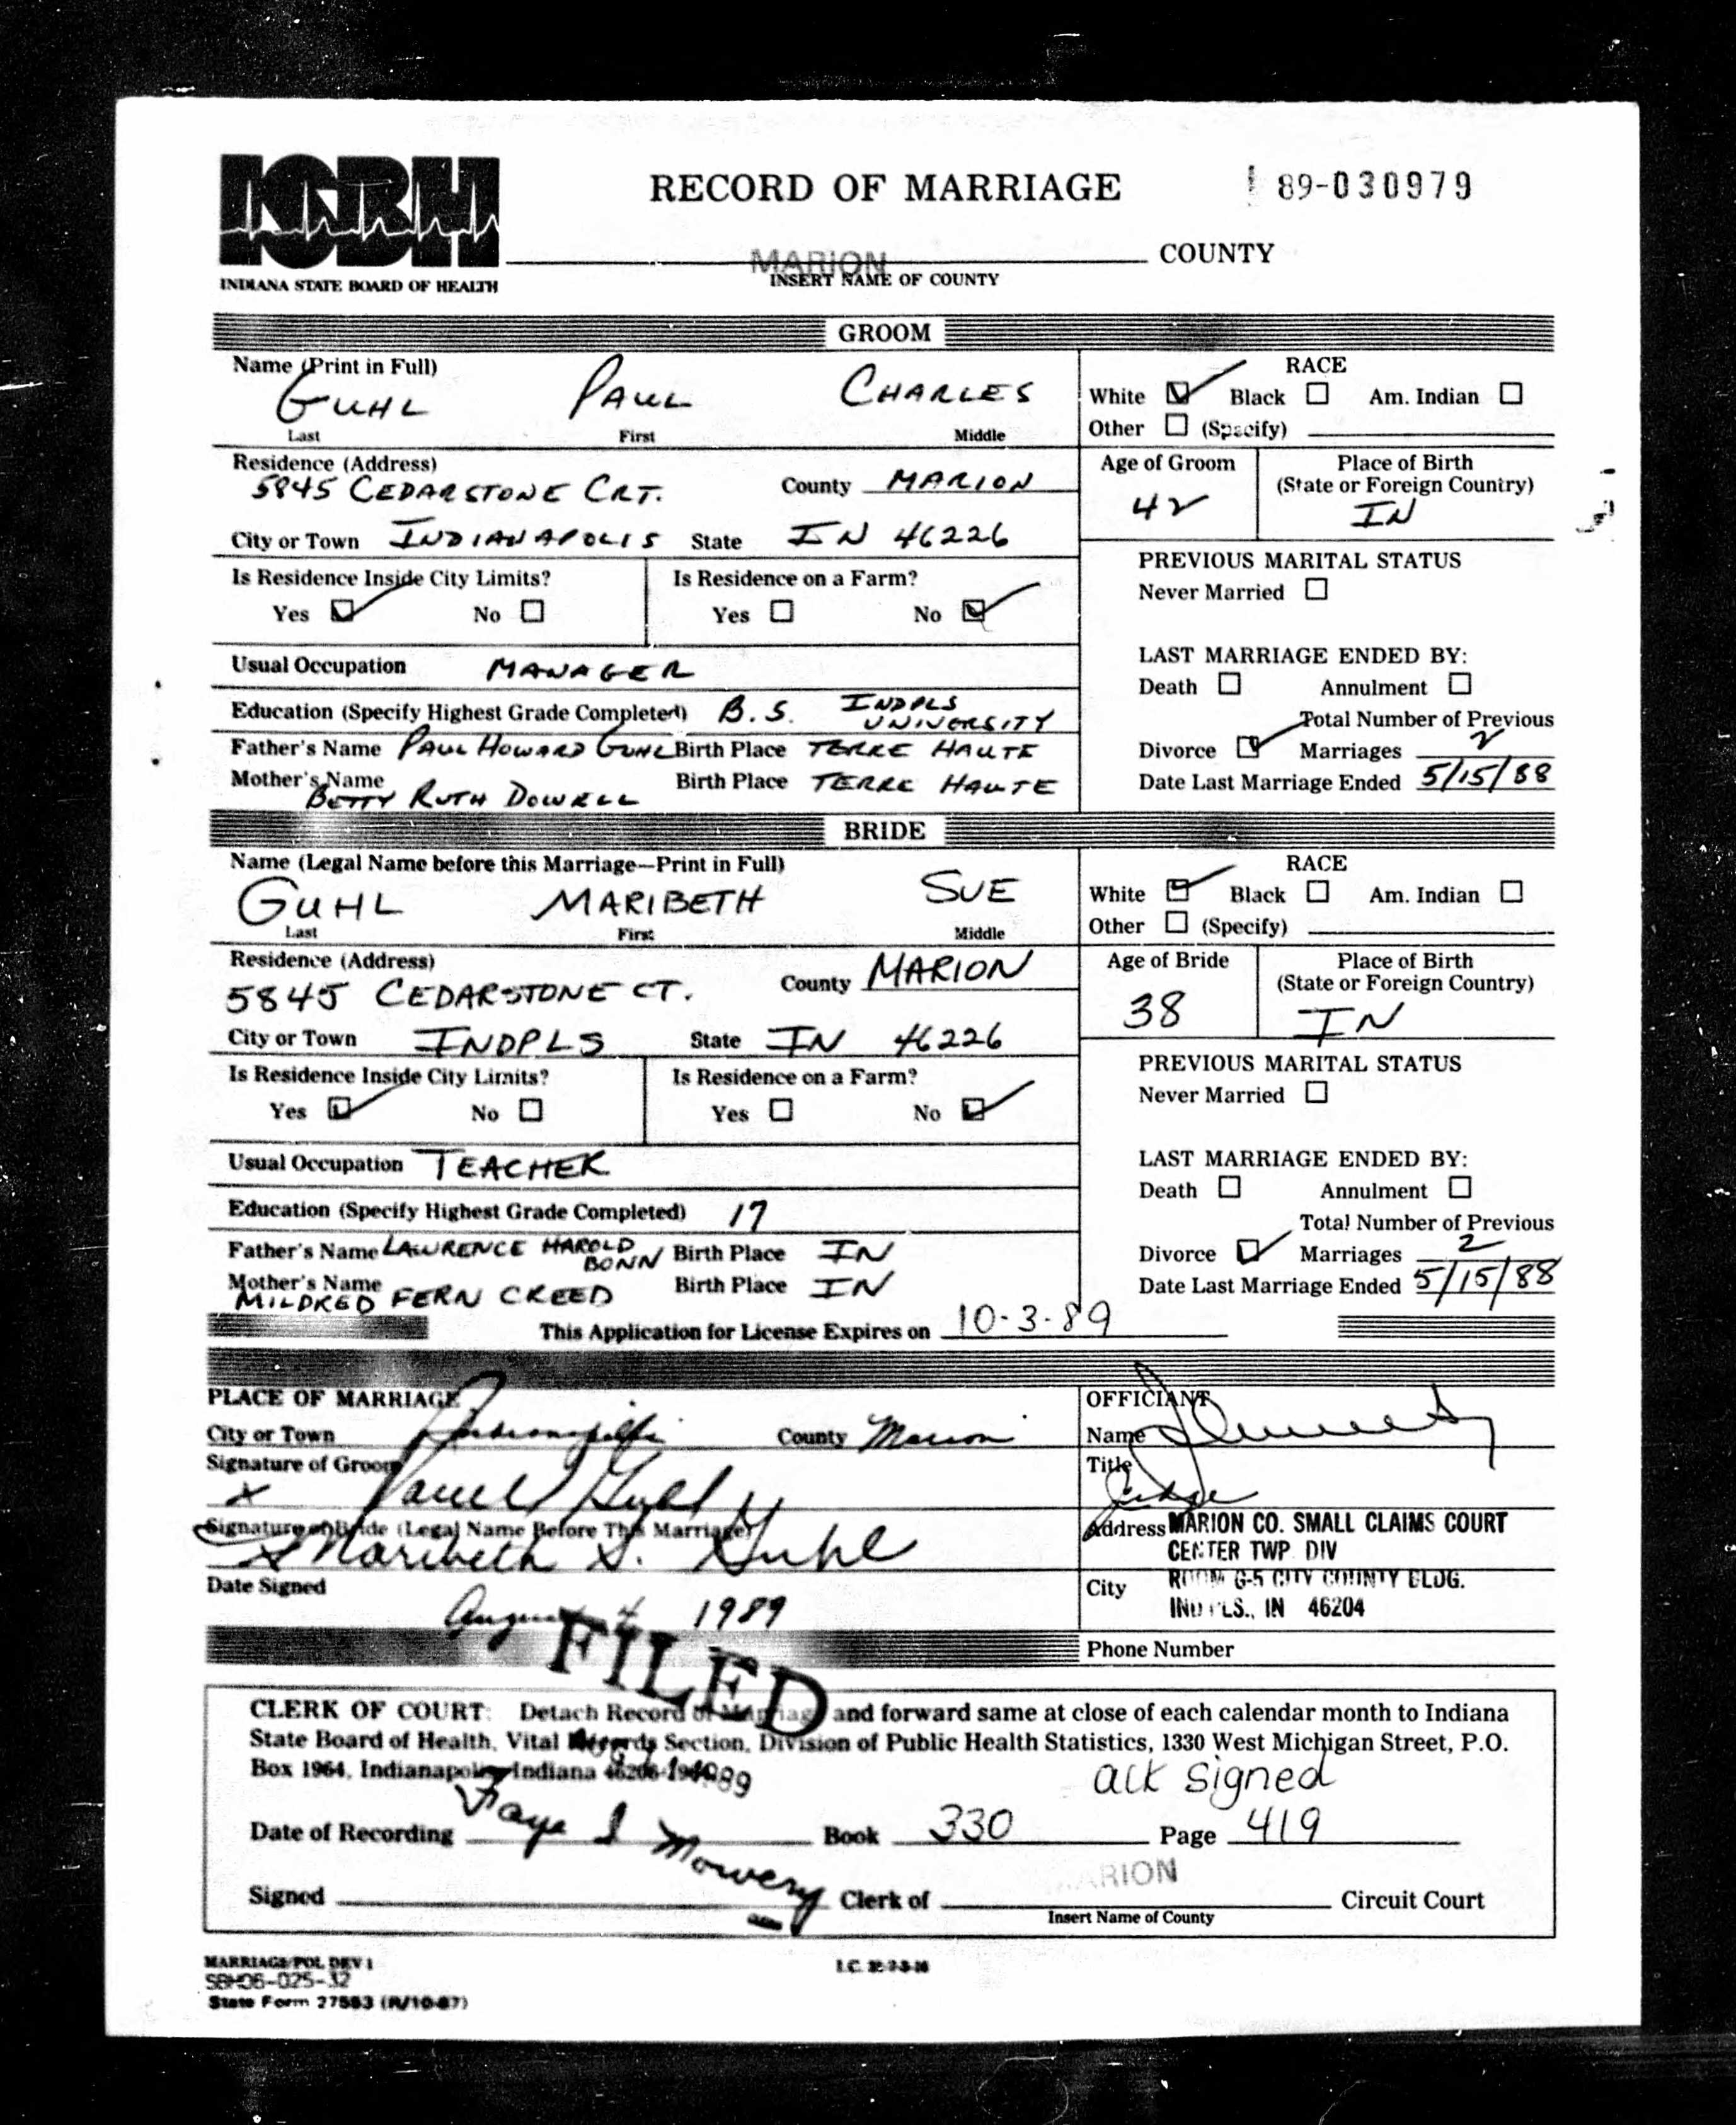 ISBH
RECORD OF MARRIAGE 89-030979
MARION COUNTY
INSERT NAME OF COUNTY
INDIANA STATE BOARD OF HEALTH
GROOM
Name (Print in Full) RACE
GUHL PAUL CHARLES White Black Am. Indian
Last First Middle Other (Specify)
Residence (Address) Age of Groom Place of Birth
5845 CEDARSTONE CRT. County MARION (State or Foreign Country)
42 IN
City or Town INDIANAPOLIS State IN 46226
PREVIOUS MARITAL STATUS
Is Residence Inside City Limits? Is Residence on a Farm? Never Married
Yes No Yes No
LAST MARRIAGE ENDED BY:
Usual Occupation MANAGER Death Annulment
Education (Specify Highest Grade Completed) B.S. INDPLS UNIVERSITY Total Number of Previous
Father's Name PAUL HOWARD GUHL Birth Place TERRE HAUTE Divorce Marriages 2
Mother's Name BETTY RUTH DOWELL Birth Place TERRE HAUTE Date Last Marriage Ended 5/15/88
BRIDE
Name (Legal Name before this Marriage—Print in Full) RACE
GUHL MARIBETH SUE White Black Am. Indian
Last First Middle Other (Specify)
Residence (Address) Age of Bride Place of Birth
5845 CEDARSTONE CT. County MARION (State or Foreign Country)
38 IN
City or Town INDPLS State IN 46226
PREVIOUS MARITAL STATUS
Is Residence Inside City Limits? Is Residence on a Farm? Never Married
Yes No Yes No
LAST MARRIAGE ENDED BY:
Usual Occupation TEACHER Death Annulment
Education (Specify Highest Grade Completed) 17 Total Number of Previous
Father's Name LAWRENCE HAROLD BONN Birth Place IN Divorce Marriages 2
Mother's Name MILDRED FERN CREED Birth Place IN Date Last Marriage Ended 5/15/88
This Application for License Expires on 10-3-89
PLACE OF MARRIAGE OFFICIANT
City or Town Indianapolis County Marion Name
Signature of Groom Title Judge
x Paul C Guhl
Signature of Bride (Legal Name Before This Marriage) Address MARION CO. SMALL CLAIMS COURT
x Maribeth S. Guhl CENTER TWP DIV
Date Signed August 4 1989 City ROOM G-5 CITY COUNTY BLDG.
INDPLS., IN 46204
FILED
Phone Number
CLERK OF COURT: Detach Record of Marriage and forward same at close of each calendar month to Indiana
State Board of Health, Vital Records Section, Division of Public Health Statistics, 1330 West Michigan Street, P.O.
Box 1964, Indianapolis, Indiana 46206-1964
ack signed
Faye I Mowery
Date of Recording Book 330 Page 419
MARION
Signed Clerk of Circuit Court
Insert Name of County
MARRIAGE/POL DEV 1
SBH06-025-32
State Form 27583 (R/10-87)